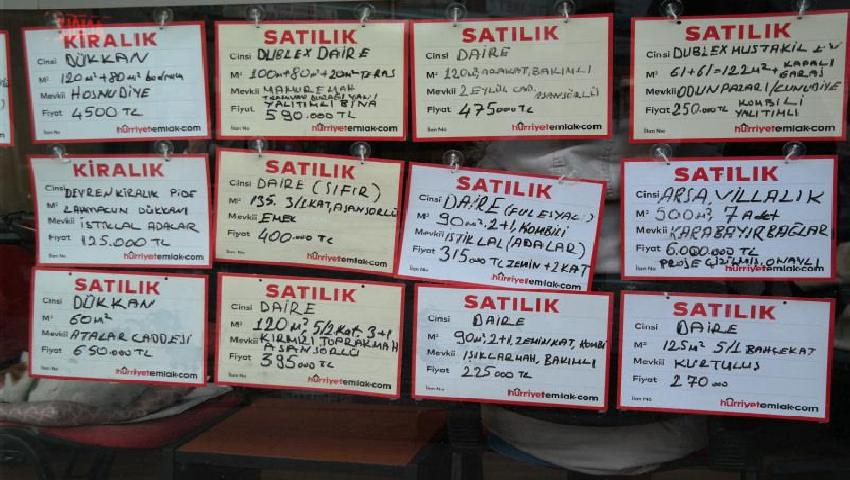 KİRALIK
Cinsi DÜKKAN
M² 120m²+80m² bodrum
Mevkii HOŞNUDİYE
Fiyat 4500 TL
İlan No
hürriyetemlak.com
SATILIK
Cinsi DUBLEX DAİRE
M² 100m²+80m²+20m² TERAS
Mevkii MAMURE MAH
YALITIMLI BİNA
Fiyat 590.000 TL
İlan No
hürriyetemlak.com
SATILIK
Cinsi DAİRE
M² 120m², ARAKAT, BAKIMLI
Mevkii 2 EYLÜL CAD, ASANSÖRLÜ
Fiyat 475000 TL
İlan No
hürriyetemlak.com
SATILIK
Cinsi DUBLEX MUSTAKİL EV
M² 61+61=122m²+ KAPALI
GARAJ
Mevkii ODUNPAZARI/CUNUDİYE
Fiyat 250.000 TL KOMBİLİ
YALITIMLI
İlan No
hürriyetemlak.com
KİRALIK
Cinsi DEVREN KİRALIK PİDE
M² LAHMACUN DÜKKANI
Mevkii İSTİKLAL ADALAR
Fiyat 125.000 TL
İlan No
hürriyetemlak.com
SATILIK
Cinsi DAİRE (SIFIR)
M² 135. 3/1 KAT, ASANSÖRLÜ
Mevkii EMEK
Fiyat 400.000 TL
İlan No
hürriyetemlak.com
SATILIK
Cinsi DAİRE
M² 90m², 2+1, KOMBİLİ
Mevkii İSTİKLAL (ADALAR)
Fiyat 315000 TL ZEMİN+2KAT
İlan No
hürriyetemlak.com
SATILIK
Cinsi ARSA, VİLLALIK
M² 900m², 7 Adet
Mevkii KARABAYIR BAĞLARI
Fiyat 6.000.000 TL
PROJE ÇİZİLMİŞ, ONAYLI
İlan No
hürriyetemlak.com
SATILIK
Cinsi DÜKKAN
M² 60m²
Mevkii ATALAR CADDESİ
Fiyat 650.000 TL
İlan No
hürriyetemlak.com
SATILIK
Cinsi DAİRE
M² 120m² 5/2 Kat 3+1
Mevkii KIRMIZI TOPRAK MAH
ASANSÖRLÜ
Fiyat 395000 TL
İlan No
hürriyetemlak.com
SATILIK
Cinsi DAİRE
M² 90m², 2+1, ZEMİN KAT, KOMBİ
Mevkii IŞIKLAR MAH, BAKIMLI
Fiyat 225000 TL
İlan No
hürriyetemlak.com
SATILIK
Cinsi DAİRE
M² 125m² 5/1 BAHÇE KAT
Mevkii KURTULUŞ
Fiyat 270000
İlan No
hürriyetemlak.com